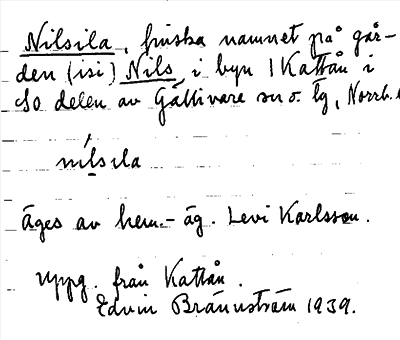 Nilsila, finska namnet på går-
den (isi) Nils, i byn Kattån i
So delen av Gällivare sn o. tg, Norrb.
nílsila
Äges av hem.-äg. Levi Karlsson.
Uppg. från Kattån.
Edvin Brännström 1939.